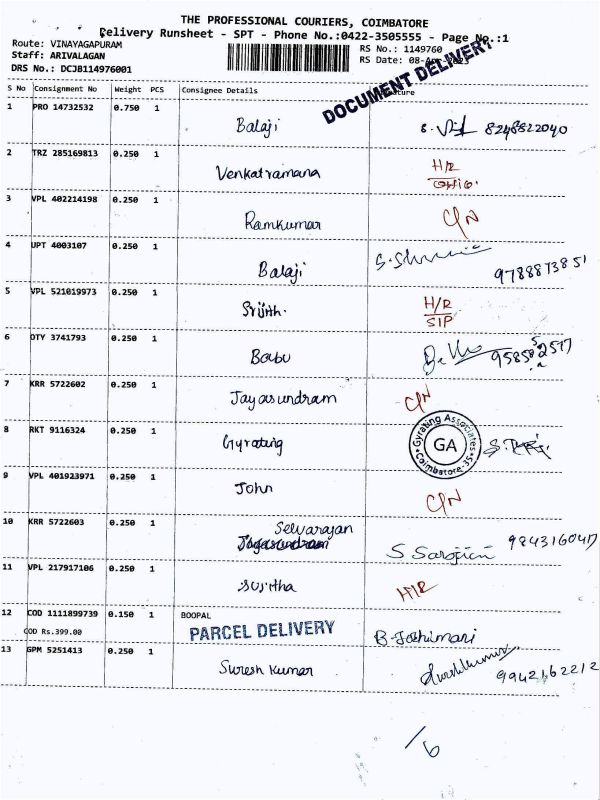 THE PROFESSIONAL COURIERS, COIMBATORE
Delivery Runsheet - SPT - Phone No.:0422-3505555 - Page No.:1
Route: VINAYAGAPURAM
RS No.: 1149760
Staff: ARIVALAGAN
RS Date: 08-Apr-2023
DRS No.: DCJB114976001
DOCUMENT DELIVERY
S No Consignment No Weight PCS Consignee Details
1 PRO 14732532 0.750 1
Balaji 8248822040
2 TRZ 285169813 0.250 1
Venkatramana H/R
3 VPL 402214198 0.250 1
Ramkumar C/N
4 UPT 4003107 0.250 1
Balaji 9788873851
5 VPL 521019973 0.250 1
Srijith. H/R
SIP
6 OTY 3741793 0.250 1
Babu
7 KRR 5722602 0.250 1
Jayasundram C/N
8 RKT 9116324 0.250 1
Gyrating Gyrating Associates GA Coimbatore-35
9 VPL 401923971 0.250 1
John C/N
10 KRR 5722603 0.250 1
Selvarajan
S Sarojini 984316041
11 VPL 217917106 0.250 1
Sujitha H/R
12 COD 1111899739 0.150 1 BOOPAL
COD Rs.399.00 PARCEL DELIVERY B. Joshimari
13 GPM 5251413 0.250 1
Suresh Kumar Sureshkumar 9942162212
/6